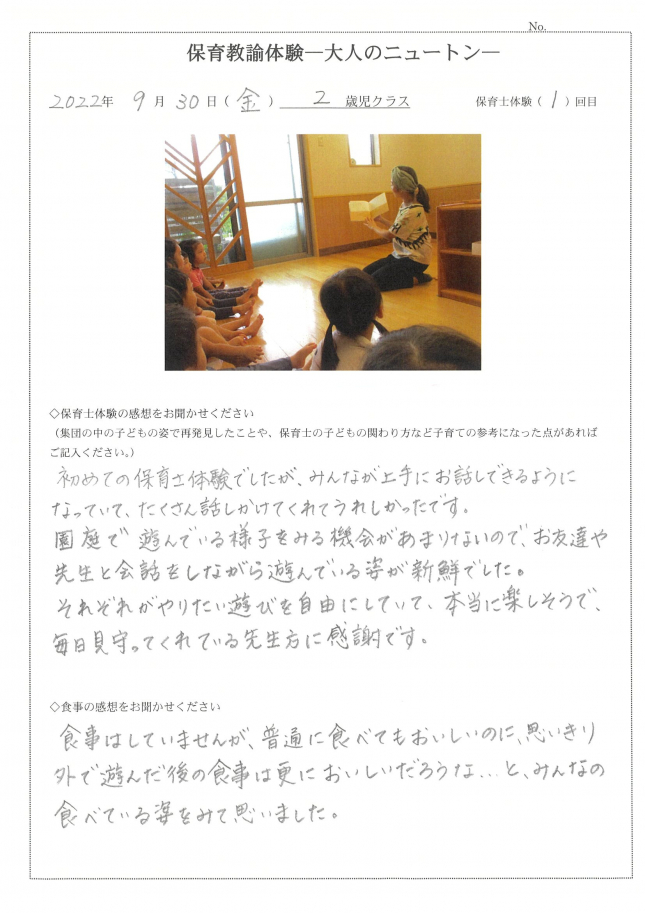 No.
保育教諭体験―大人のニュートン―
2022年 9月30日(金) 2 歳児クラス 保育士体験(1)回目
◇保育士体験の感想をお聞かせください
(集団の中の子どもの姿で再発見したことや、保育士の子どもの関わり方など子育ての参考になった点があれば
ご記入ください。)
初めての保育士体験でしたが、みんなが上手にお話しできるように
なっていて、たくさん話しかけてくれてうれしかったです。
園庭で遊んでいる様子をみる機会があまりないので、お友達や
先生と会話をしながら遊んでいる姿が新鮮でした。
それぞれがやりたい遊びを自由にしていて、本当に楽しそうで、
毎日見守ってくれている先生方に感謝です。
◇食事の感想をお聞かせください
食事はしていませんが、普通に食べてもおいしいのに、思いきり
外で遊んだ後の食事は更においしいだろうな…と、みんなの
食べている姿をみて思いました。